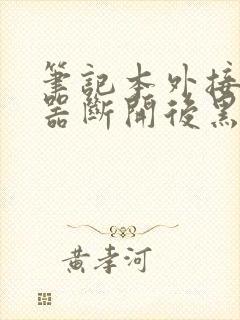 筆記本外接
器斷開後黑
黃孝河